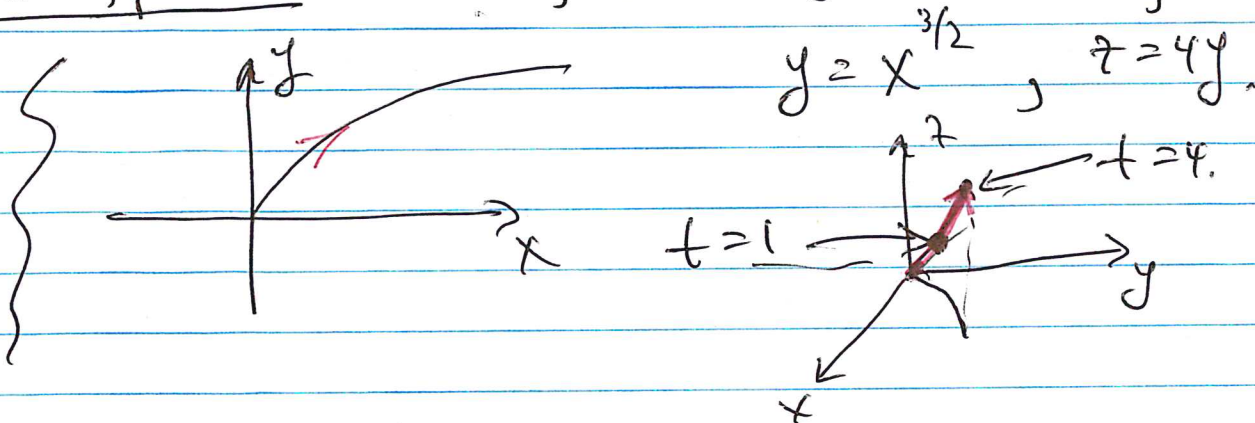 y
x
y = x^{3/2} , z = 4y.
z
t = 4.
t = 1
y
x